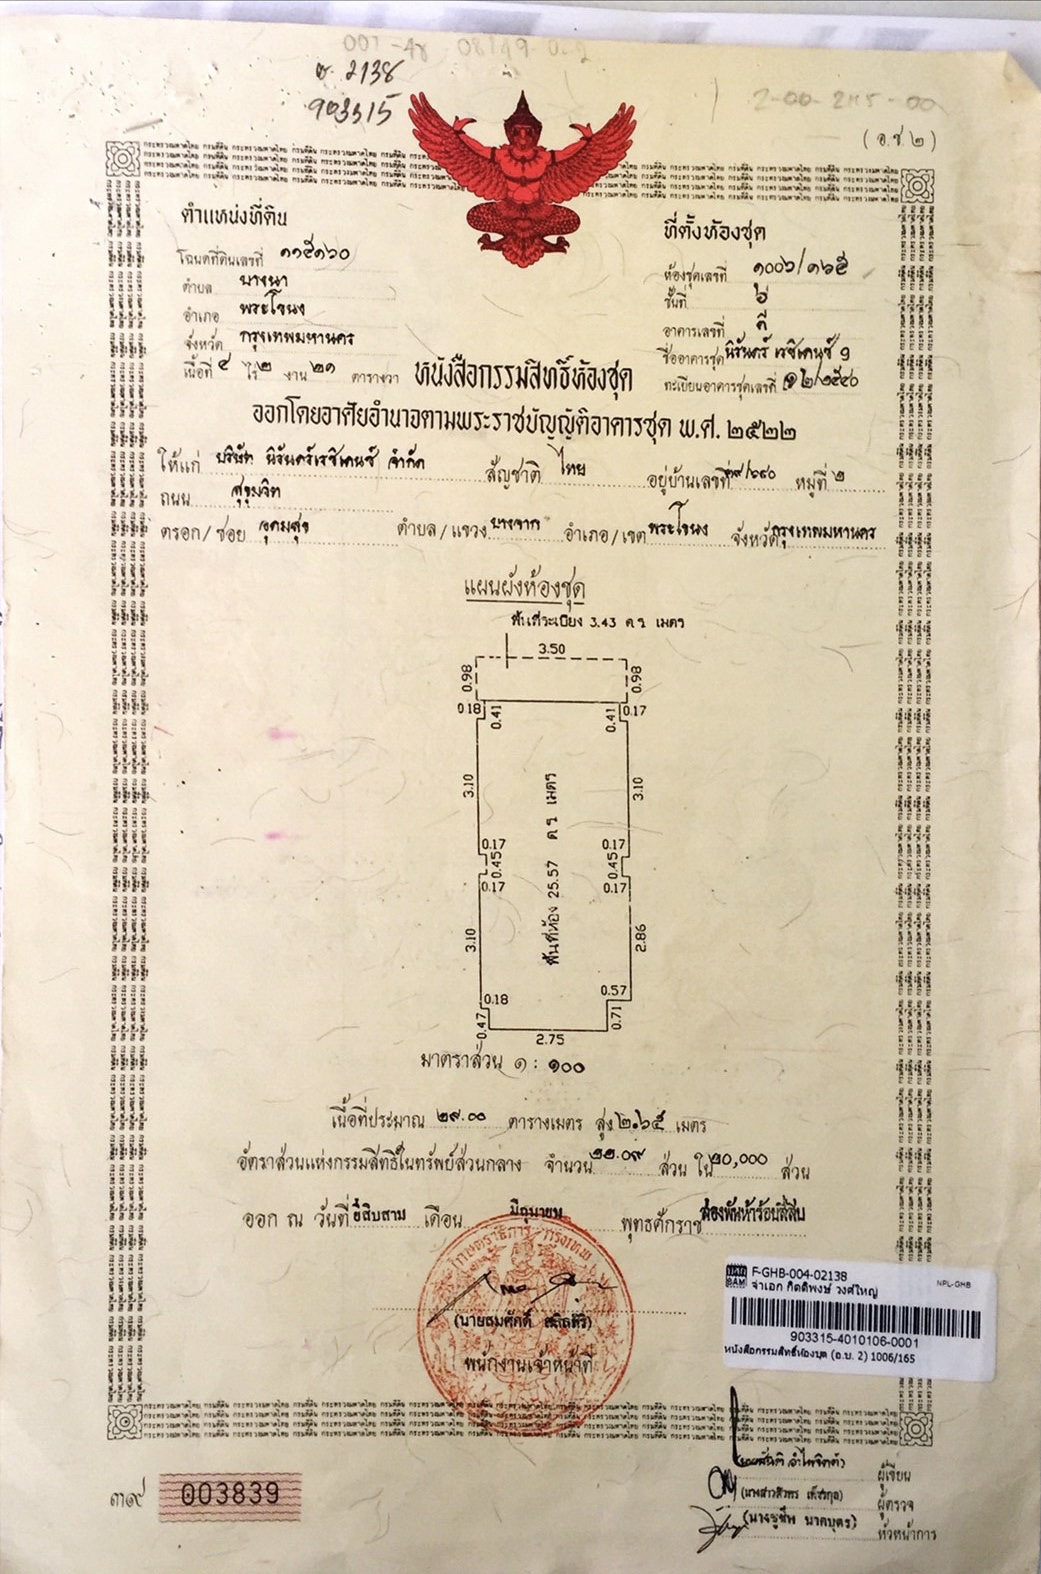 ช. 2138
903315
(อ.ช.๒)
ตำแหน่งที่ดิน
โฉนดที่ดินเลขที่ ๑๑๕๑๖๐
ตำบล บางนา
อำเภอ พระโขนง
จังหวัด กรุงเทพมหานคร
เนื้อที่ ๔ ไร่ ๒ งาน ๒๑ ตารางวา
ที่ตั้งห้องชุด
ห้องชุดเลขที่ ๑๐๐๖/๑๖๕
ชั้นที่ ๖
อาคารเลขที่ ดี
ชื่ออาคารชุด นิรันดร์ เรซิเดนซ์ ๑
ทะเบียนอาคารชุดเลขที่ ๑๒/๒๕๔๐
หนังสือกรรมสิทธิ์ห้องชุด
ออกโดยอาศัยอำนาจตามพระราชบัญญัติอาคารชุด พ.ศ. ๒๕๒๒
ให้แก่ บริษัท นิรันดร์เรซิเดนซ์ จำกัด สัญชาติ ไทย อยู่บ้านเลขที่ ๓๙/๖๙๐ หมู่ที่ ๒
ถนน สุขุมวิท
ตรอก/ซอย อุดมสุข ตำบล/แขวง บางจาก อำเภอ/เขต พระโขนง จังหวัด กรุงเทพมหานคร
แผนผังห้องชุด
พื้นที่ระเบียง 3.43 ตร เมตร
3.50
0.98 0.98
0.18 0.41 0.41 0.17
3.10 3.10
0.17 0.17
0.45 0.45
0.17 0.17
พื้นที่ห้อง 25.57 ตร เมตร
3.10 2.86
0.18 0.57
0.47 0.71
2.75
มาตราส่วน ๑ : ๑๐๐
เนื้อที่ประมาณ ๒๙.๐๐ ตารางเมตร สูง ๒.๖๕ เมตร
อัตราส่วนแห่งกรรมสิทธิ์ในทรัพย์ส่วนกลาง จำนวน ๒๒.๐๙ ส่วน ใน ๒๐,๐๐๐ ส่วน
ออก ณ วันที่ ยี่สิบสาม เดือน มิถุนายน พุทธศักราช สองพันห้าร้อยสี่สิบ
(นายสมศักดิ์ สถิลศิริ)
พนักงานเจ้าหน้าที่
BAM F-GHB-004-02138 NPL-GHB
จ่าเอก กิตติพงษ์ วงศ์ใหญ่
903315-4010106-0001
หนังสือกรรมสิทธิ์ห้องชุด (อ.ช. 2) 1006/165
ผู้เขียน
ผู้ตรวจ
(นางชูชีพ นาคบุตร) หัวหน้าการ
๓๑๙ 003839